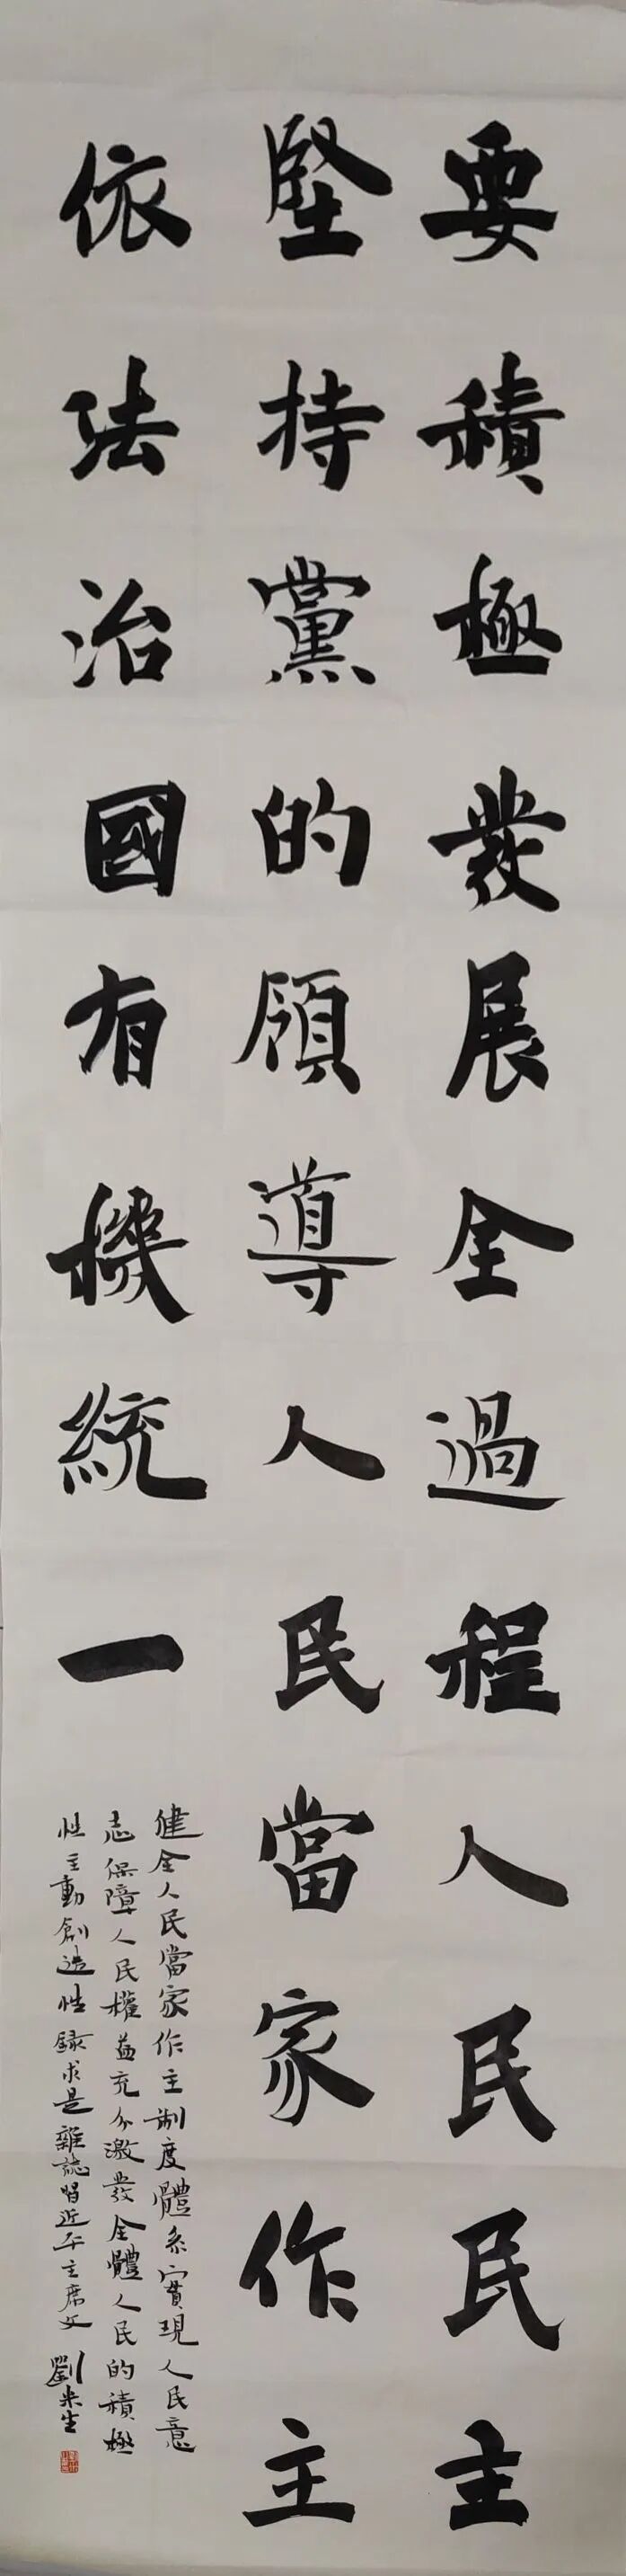 要積極發展全過程人民民主
堅持黨的領導人民當家作主
依法治國有機統一
健全人民當家作主制度體系實現人民意
志保障人民權益充分激發全體人民的積極
性主動創造性錄求是雜誌習近平主席文 劉米生